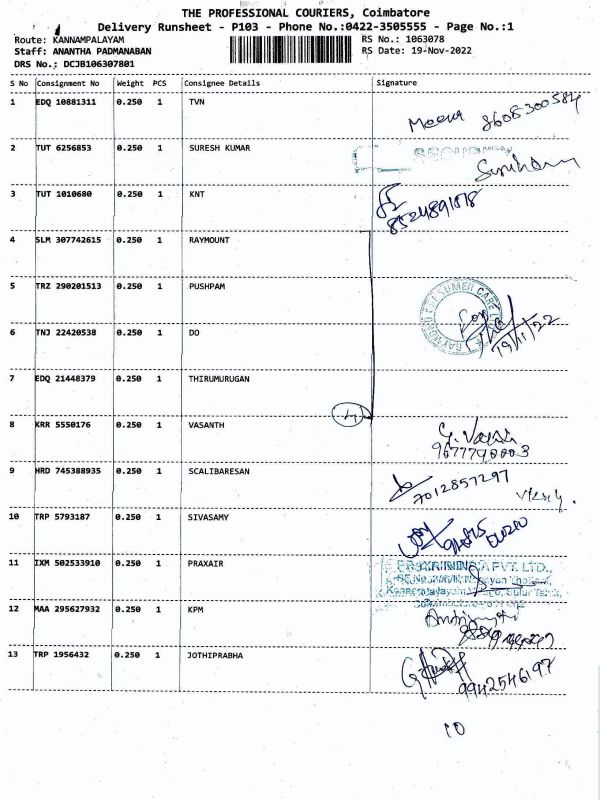 THE PROFESSIONAL COURIERS, Coimbatore
Delivery Runsheet - P103 - Phone No.:0422-3505555 - Page No.:1
Route: KANNAMPALAYAM
RS No.: 1063078
Staff: ANANTHA PADMANABAN
RS Date: 19-Nov-2022
DRS No.: DCJB106307801
S No Consignment No Weight PCS Consignee Details Signature
1 EDQ 10881311 0.250 1 TVN
Meena 8608300584
2 TUT 6256853 0.250 1 SURESH KUMAR
3 TUT 1010680 0.250 1 KNT
8524891878
4 SLM 307742615 0.250 1 RAYMOUNT
5 TRZ 290201513 0.250 1 PUSHPAM
6 TNJ 22420538 0.250 1 DO
19/11/22
7 EDQ 21448379 0.250 1 THIRUMURUGAN
4
8 KRR 5550176 0.250 1 VASANTH
9677790003
9 HRD 745388935 0.250 1 SCALIBARESAN
7012857297
10 TRP 5793187 0.250 1 SIVASAMY
11 IXM 502533910 0.250 1 PRAXAIR
PVT. LTD.,
12 MAA 295627932 0.250 1 KPM
13 TRP 1956432 0.250 1 JOTHIPRABHA
9942546197
10